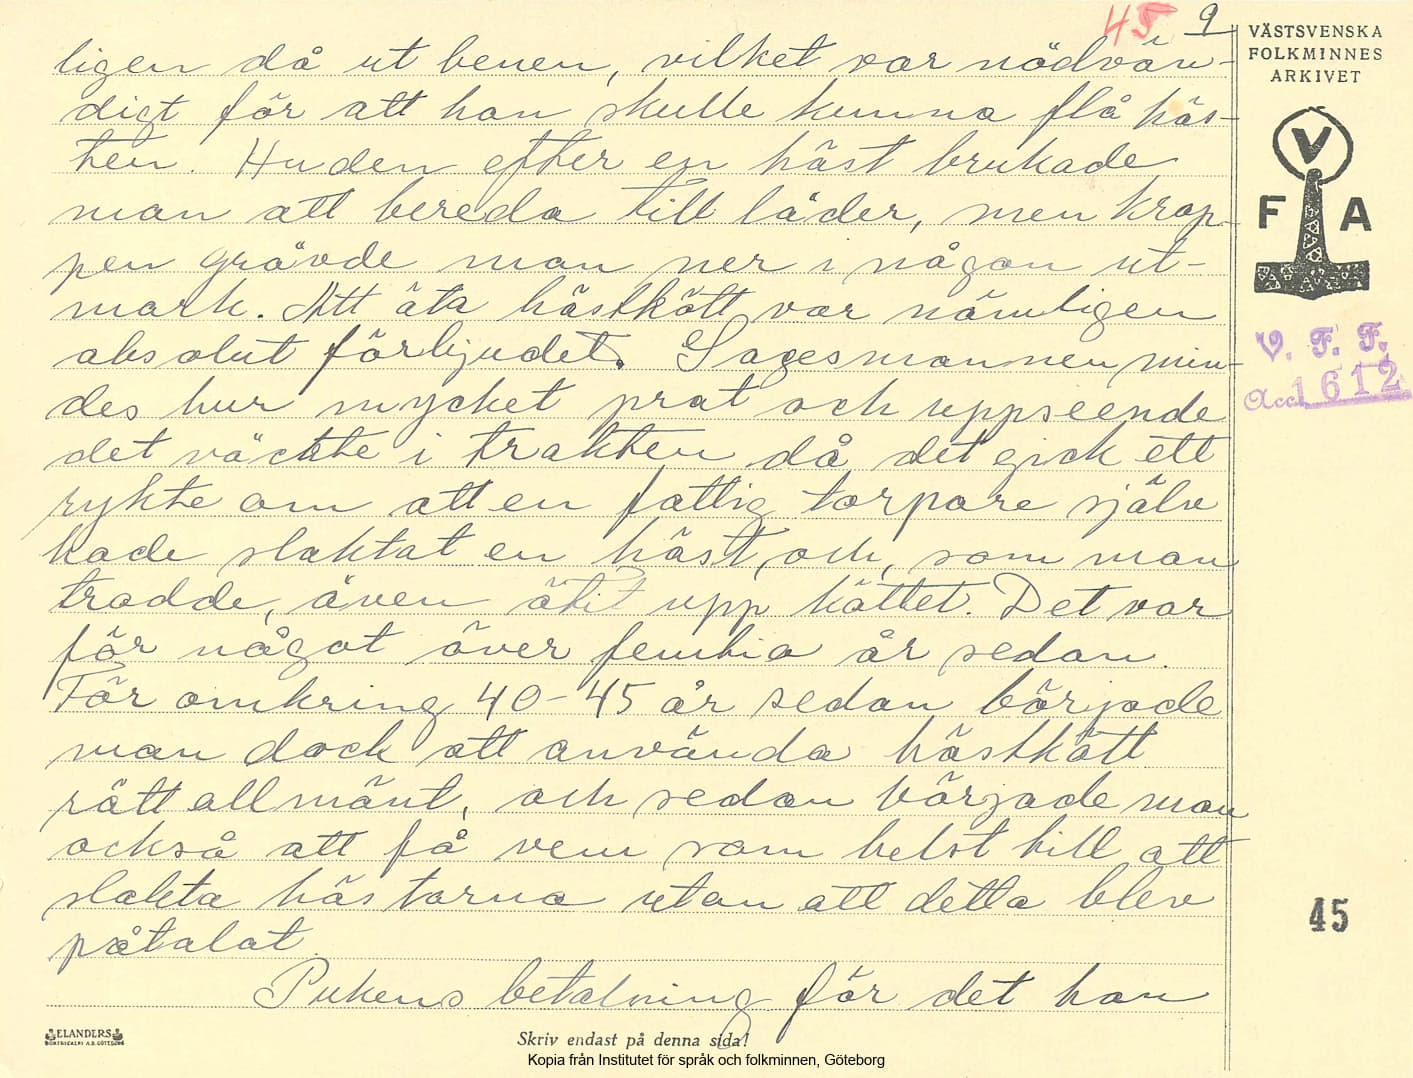 45 9
ligen då ut benen, vilket var nödvän-
digt för att han skulle kunna flå häs-
ten. Huden efter en häst brukade
man att bereda till läder, men krop-
pen grävde man ner i någon ut-
mark. Att äta hästkött var nämligen
absolut förbjudet. Sagesmannen min-
des hur mycket prat och uppseende
det väckte i trakten då det gick ett
rykte om att en fattig torpare själv
hade slaktat en häst, och, som man
trodde, även ätit upp köttet. Det var
för något över femtio år sedan.
För omkring 40-45 år sedan började
man dock att använda hästkött
rätt allmänt, och sedan började man
också att få vem som helst till att
slakta hästarna utan att detta blev
påtalat.
Pukens betalning för det han
VÄSTSVENSKA
FOLKMINNES
ARKIVET
V
F A
V. F. F.
Acc. 1612
45
ELANDERS
BOKTRYCKERI A.B. GÖTEBORG
Skriv endast på denna sida!
Kopia från Institutet för språk och folkminnen, Göteborg